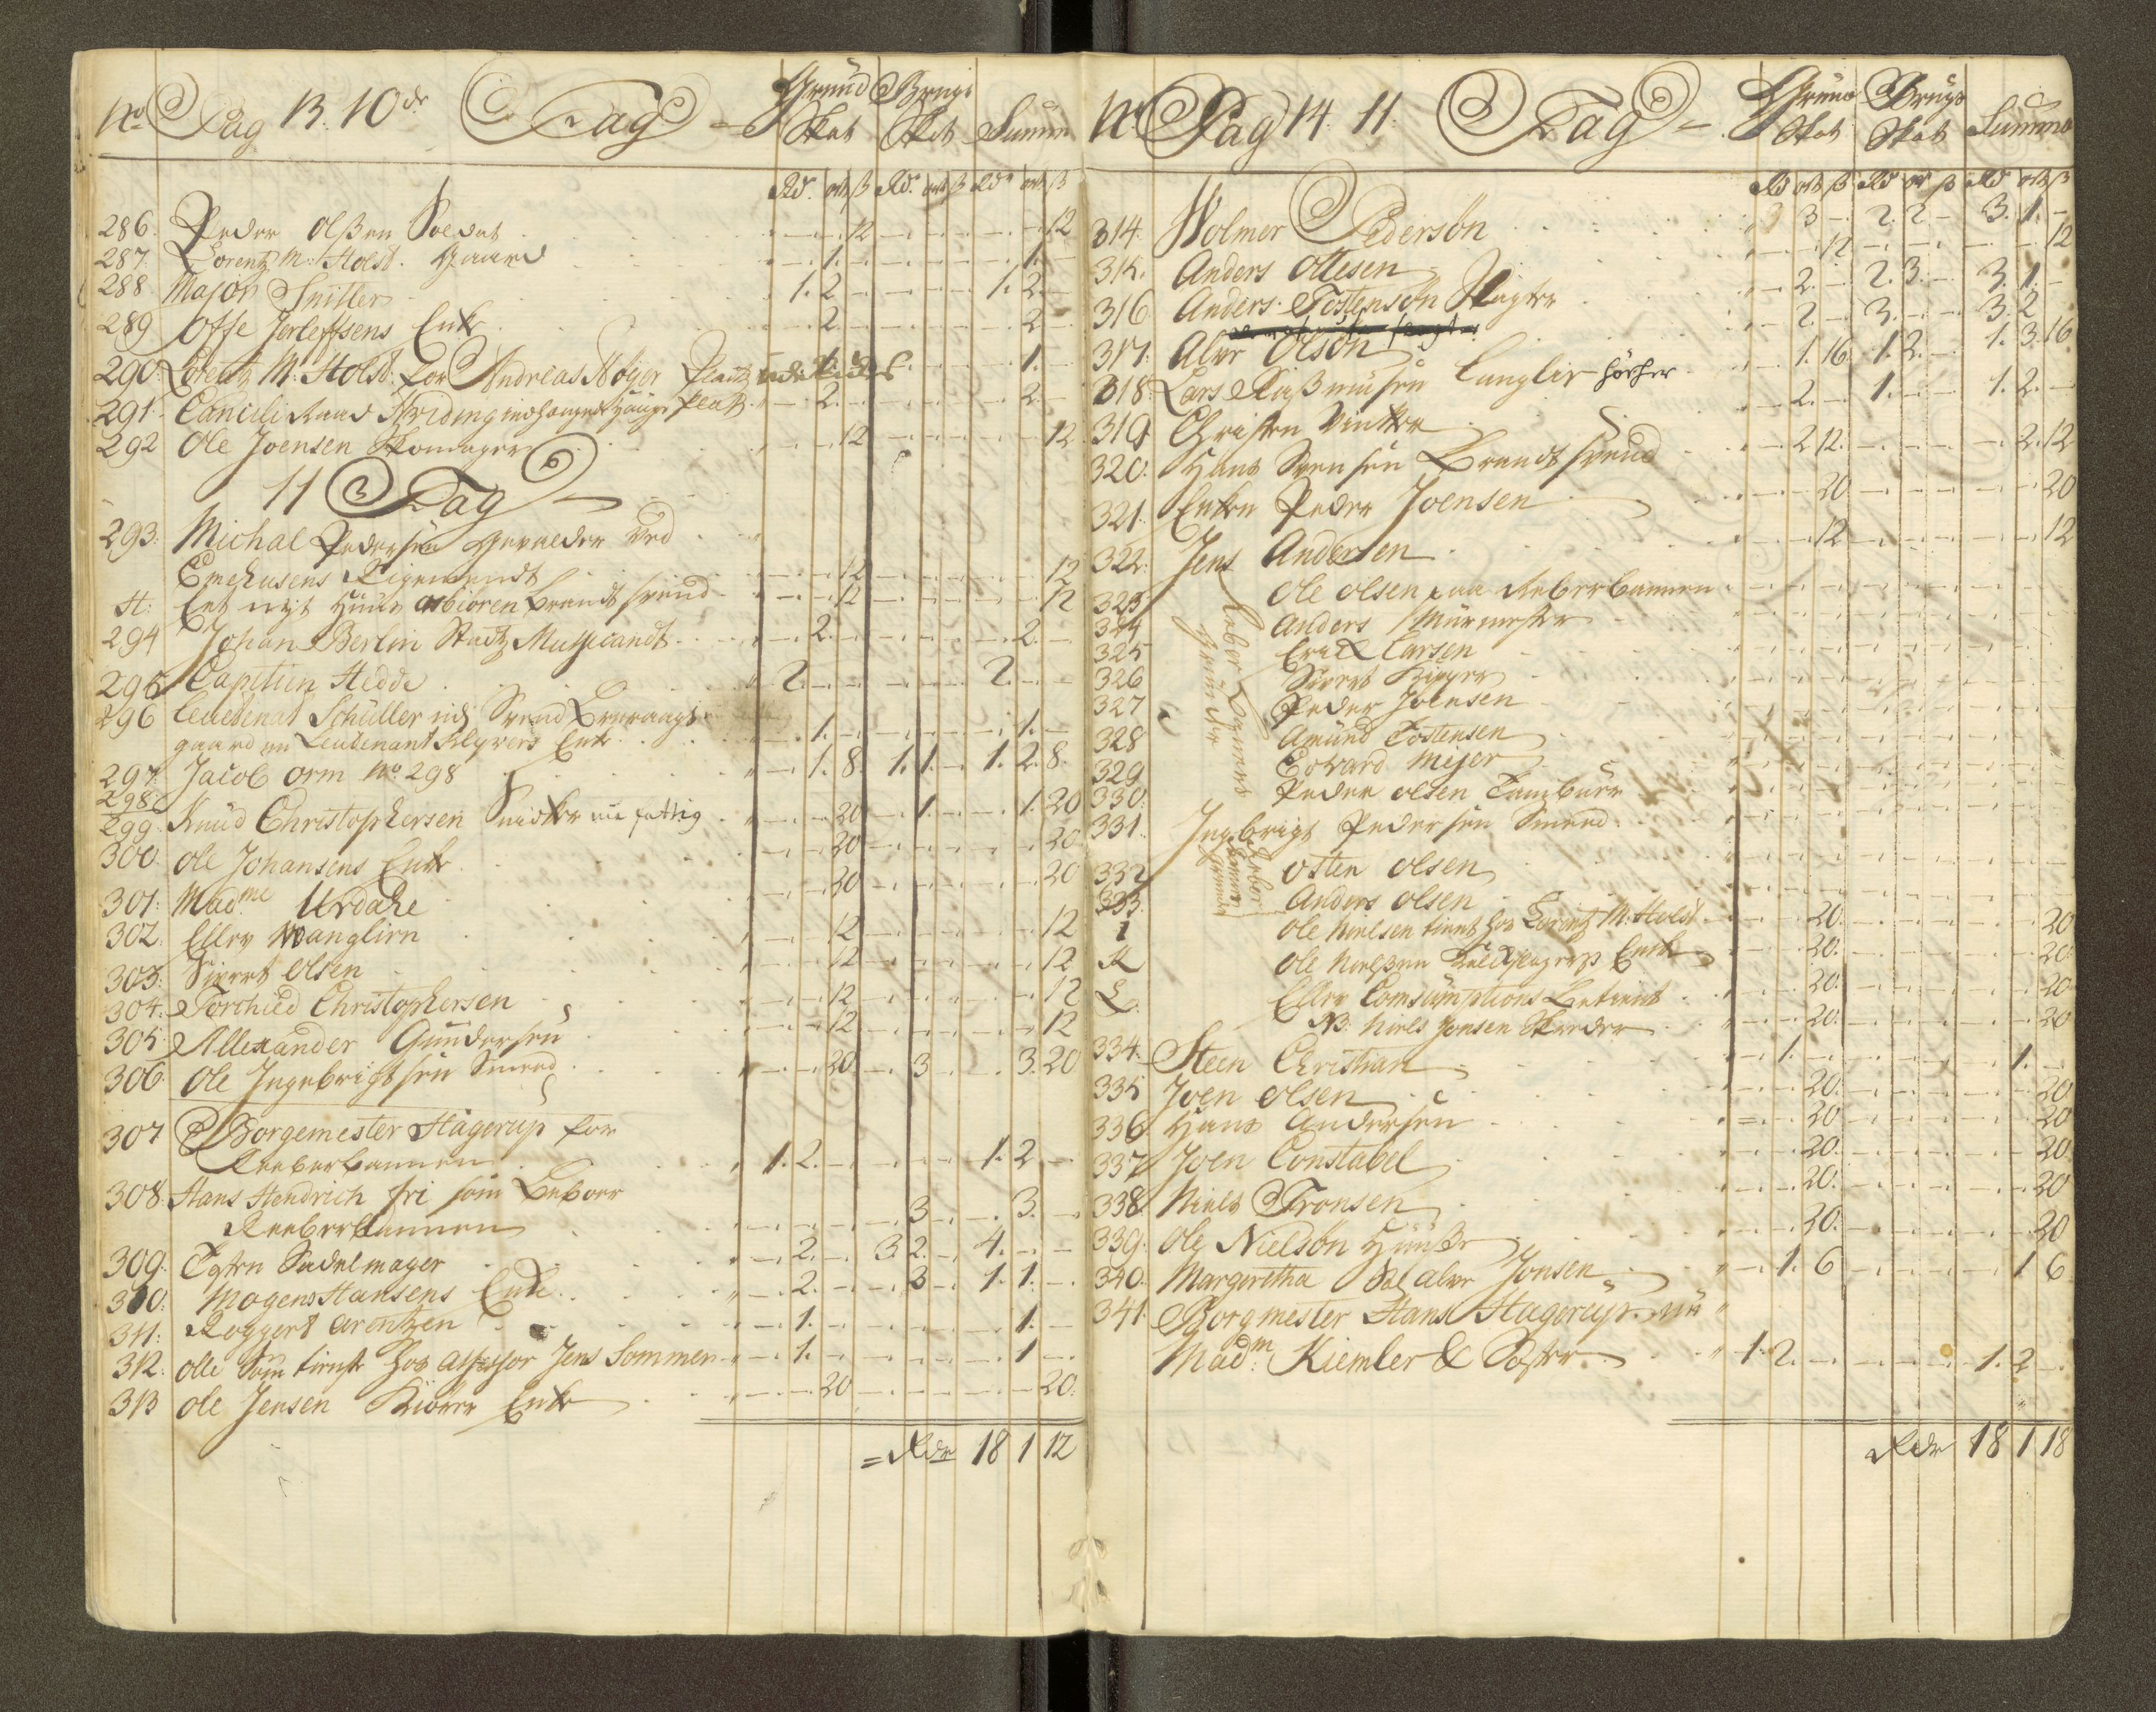 No Pag 13. 10de Tag Grund Skat Brugs Skat Summa
Rdr. ort ß Rdr. ort ß Rdr ort ß
286. Peder Olßen Soldat 12 12
287. Lorentz M: Holst. Gaard 1. 1.
288 Major Snitler 1. 2 1. 2.
289 Offe Jerleffsens Enke 2 2
290. Lorentz M: Holst. for Andreas Höyer Platz 1. 1.
291. Cancilli Raad platz 2. 2.
292 Ole Joensen Skomager 12 12.
11 Tag
293. Michal Pedersen ved
Rigemendt 12 12
H: Et nyt Huus Asbiören Brandtsvend 12 12
294 Johan Berlin Stadtz Mussicandt 2. 2.
295 Capitien Hedde 2. 2.
296 Leutenat Schuller
gaard Leutenant Enke 1. 1.
297. Jacob Orm No 298 1. 8. 1. 1. 1. 2. 8.
298.
299. Knud Christophersen Snidker nu fattig 20 1. 1. 20
300. Ole Johansens Enke 20 20.
301. Madme Urdahl 20 20
302. Eller Wanglirn 12 12
303. Sivert Olsen 12 12
304. Torchild Christophersen 12 12
305. Allexander Gundersen 12 12
306. Ole Ingebrigtsen Smed 20 3 3. 20
307 Borgemester Hagerup for
Reeberbannen 1. 2. 1. 2
308. Hans Hendrich fri som Beboer
Reeberbannen 3 3.
309. Sadelmager 2. 3. 2. 4.
310. Mogens Hansens Enke 2. 3 1. 1.
311. Roggert Arentzen 1. 1.
312. Olle Som tiente hos Assessor Jens Sommer 1. 1
313 Ole Jensen Kiörer Enke 20 20.
= Rdr 18 1 12
No Pag 14. 11. Tag Grund Skat Brugs Skat Summa
Rd ort ß Rd ort ß Rd ort ß
314. Wolmer Pedersön 3 2. 2 3. 1.
315. Anders Ollesen 12 12
316. Anders Tostensön Slagter 2. 2. 3. 3. 1.
317. Alver Olsön 2. 3. 3. 2
318. Lars Raßmusen Langlie 1. 16 1. 2. 1. 3. 16
319. Christen Vinter 2. 1. 1. 2.
320. Hans Svensen Brandtsvend 2 12. 2. 12
321. Enken Peder Joensen 20 20
322. Jens Andersen 12 12
323 Ole Olsen paa Reberbannen
324 Anders Murmester
325 Erich Larsen
326 Sivert
327 Peder Joensen
328 Amund Tostensen
329 Edvard Mejer
330. Peder Olsen Tambuur
331. Ingebrigt Pedersen Smed
332 Osten Olsen
333. Anders Olsen
I Ole Nielsen tient hos Lorentz M: Holst 20. 20
K Ole Nielsen Enke 20. 20.
L. Eller Comsumptions Betient 20. 20
NB. Niels Jonsen 20. 20
334. Steen Christian 1. 1.
335 Joen Olsen 20. 20
336 Hans Andersen 20 20
337 Joen Constabel 20. 20.
338 Niels Tronsen 20. 20
339. Ole Nielsön 20. 20
340. Margeretha Sal Alver Jonsen 1. 6 1 6
341. Borgmester Hans Hagerup. nu
Madm: Kiemler & Söster 1. 2. 1. 2
Rdr 18 1 18